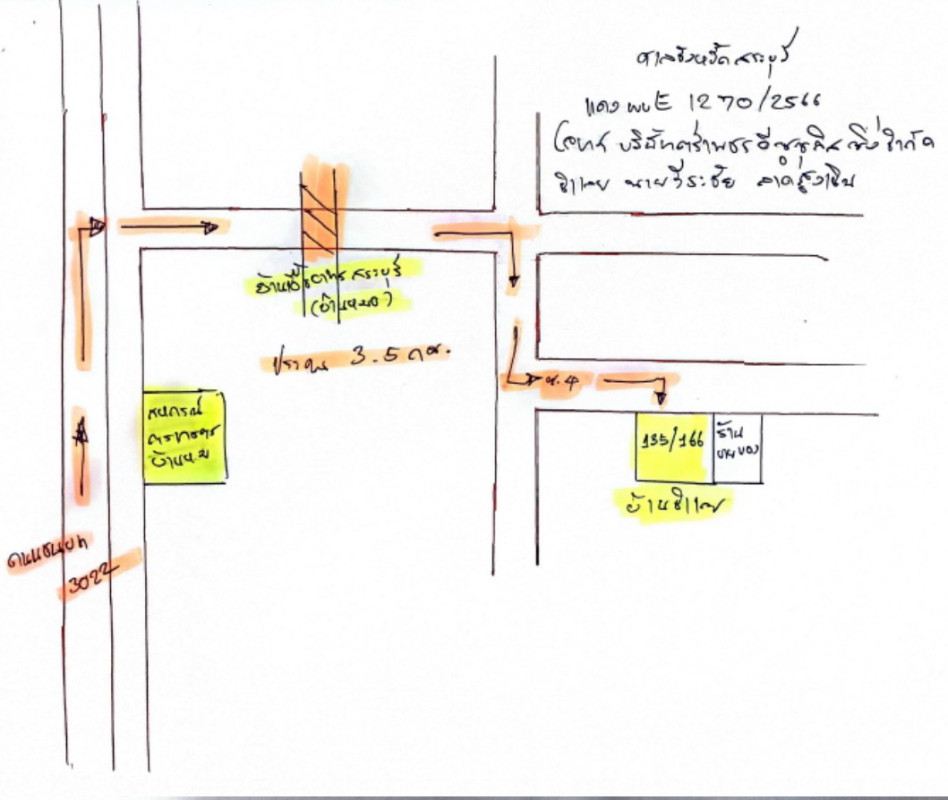 ศาลจังหวัดสระบุรี
แดง ผบE 1270/2566
โจทก์ บริษัทตรีเพชรอีซูซุลิสซิ่งจำกัด
จำเลย นายวีระชัย
บ้านเอื้ออาทรสระบุรี
(บ้านหมอ)
ประมาณ 3.5 กม.
สหกรณ์
การเกษตร
บ้านหมอ
ซ.4
135/166
ร้าน
ขายของ
บ้านจำเลย
ถนนชนบท
3022